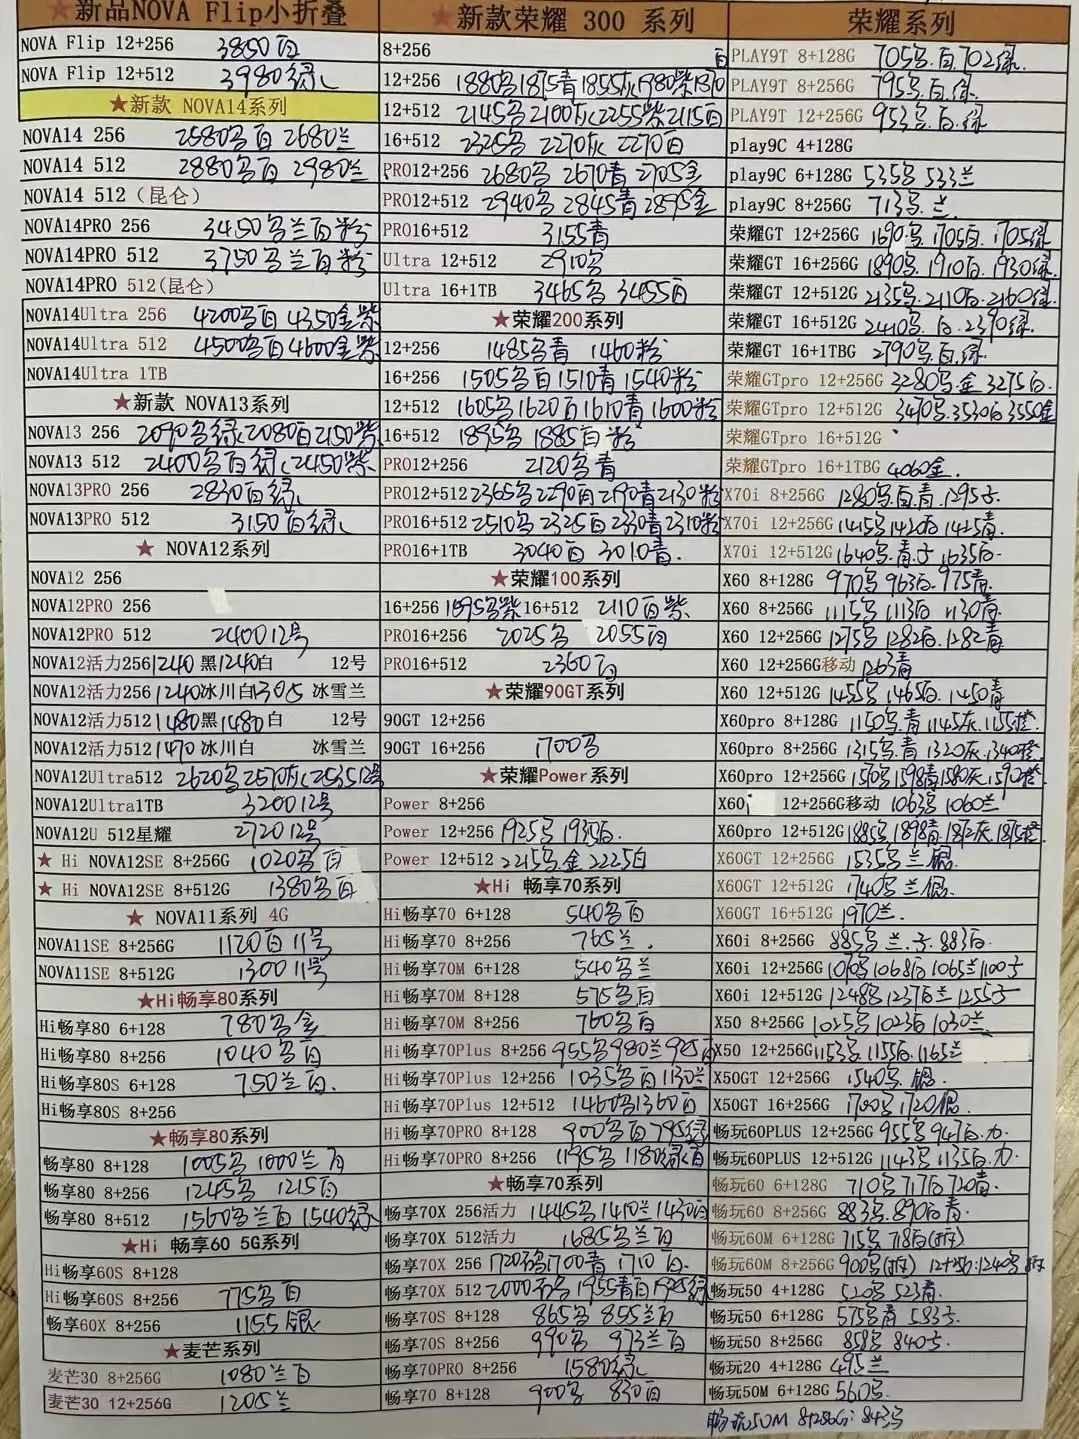 ★新品NOVA Flip小折叠
NOVA Flip 12+256 3850白
NOVA Flip 12+512 3980绿
★新款 NOVA14系列
NOVA14 256 2580鸟白 2680兰
NOVA14 512 2880鸟白 2980兰
NOVA14 512（昆仑）
NOVA14PRO 256 3450鸟兰白粉
NOVA14PRO 512 3750鸟兰白粉
NOVA14PRO 512(昆仑)
NOVA14Ultra 256 4200鸟白 4350金紫
NOVA14Ultra 512 4500鸟白 4600金紫
NOVA14Ultra 1TB
★新款 NOVA13系列
NOVA13 256 2090鸟绿 2080白 2150紫
NOVA13 512 2400鸟白绿 2450紫
NOVA13PRO 256 2830白绿
NOVA13PRO 512 3150白绿
★ NOVA12系列
NOVA12 256
NOVA12PRO 256
NOVA12PRO 512 2400 12号
NOVA12活力256 1240黑1240白 12号
NOVA12活力256 1240冰川白1305 冰雪兰
NOVA12活力512 1480黑1480白 12号
NOVA12活力512 1470冰川白 冰雪兰
NOVA12Ultra512 2620鸟 2570灰 2535 12号
NOVA12Ultra1TB 3200 12号
NOVA12U 512星耀 2720 12号
★ Hi NOVA12SE 8+256G 1020鸟白
★ Hi NOVA12SE 8+512G 1380鸟白
★ NOVA11系列 4G
NOVA11SE 8+256G 1120白 11号
NOVA11SE 8+512G 1300 11号
★Hi畅享80系列
Hi畅享80 6+128 780鸟金
Hi畅享80 8+256 1040鸟白
Hi畅享80S 6+128 750兰白.
Hi畅享80S 8+256
★畅享80系列
畅享80 8+128 1005鸟 1000兰白
畅享80 8+256 1245鸟 1215白
畅享80 8+512 1560鸟兰白 1540绿
★Hi 畅享60 5G系列
Hi畅享60S 8+128
Hi畅享60S 8+256 775鸟白
畅享60X 8+256 1155银
★麦芒系列
麦芒30 8+256G 1080兰白
麦芒30 12+256G 1205兰
★新款荣耀 300 系列
8+256
12+256 1880鸟1875青1855灰1980紫1870白
12+512 2145鸟2100灰2255紫2115白
16+512 2325鸟 2270灰 2270白
PRO12+256 2680鸟 2670青 2705金
PRO12+512 2940鸟 2845青 2895金
PRO16+512 3155青
Ultra 12+512 2910鸟
Ultra 16+1TB 3465鸟 3455白
★荣耀200系列
12+256 1485鸟青 1460粉
16+256 1505鸟白1510青1540粉
12+512 1605鸟1620白1610青1600粉
16+512 1895鸟 1885白粉
PRO12+256 2120鸟青
PRO12+512 2365鸟2290白2190青2130粉
PRO16+512 2510鸟2325白2330青2310粉
PRO16+1TB 3040白 3010青.
★荣耀100系列
16+256 1895鸟紫 16+512 2110白紫
PRO16+256 2025鸟 2055白
PRO16+512 2360白
★荣耀90GT系列
90GT 12+256
90GT 16+256 1700鸟
★荣耀Power系列
Power 8+256
Power 12+256 1925鸟 1930白.
Power 12+512 2215鸟.金 2225白
★Hi 畅享70系列
Hi畅享70 6+128 540鸟白
Hi畅享70 8+256 765兰.
Hi畅享70M 6+128 540鸟兰
Hi畅享70M 8+128 575鸟白
Hi畅享70M 8+256 760鸟白
Hi畅享70Plus 8+256 955鸟980兰925白
Hi畅享70Plus 12+256 1035鸟白1130兰
Hi畅享70Plus 12+512 1460鸟1360白
Hi畅享70PRO 8+128 900鸟白795绿
Hi畅享70PRO 8+256 1195鸟 1180绿白
★畅享70系列
畅享70X 256活力 1445鸟1410兰1430白
畅享70X 512活力 1685鸟兰白
畅享70X 256 1720鸟1700青 1710白.
畅享70X 512 2000鸟 1955青白1925绿
畅享70S 8+128 865鸟 855兰白
畅享70S 8+256 990鸟 973兰白
畅享70PRO 8+256 1580绿
畅享70 8+128 900鸟 830白
荣耀系列
PLAY9T 8+128G 705鸟.白.702绿.
PLAY9T 8+256G 795鸟.白.绿.
PLAY9T 12+256G 953鸟.白.绿
play9C 4+128G
play9C 6+128G 535鸟 533兰
play9C 8+256G 713鸟.兰.
荣耀GT 12+256G 1690鸟.1705白.1705绿
荣耀GT 16+256G 1890鸟.1910白.1930绿.
荣耀GT 12+512G 2135鸟.2110白.2160绿.
荣耀GT 16+512G 2410鸟.白.2390绿.
荣耀GT 16+1TBG 2790鸟.白.绿.
荣耀GTpro 12+256G 3280鸟.金 3275白.
荣耀GTpro 12+512G 3470鸟.3530白3550金
荣耀GTpro 16+512G
荣耀GTpro 16+1TBG 4060金.
X70i 8+256G 1280鸟.白.青.1295子.
X70i 12+256G 1415鸟1420白1425青.
X70i 12+512G 1640鸟.青子 1635白.
X60 8+128G 970鸟 963白.975青.
X60 8+256G 1115鸟1113白 1130青.
X60 12+256G 1275鸟1282白.1282青
X60 12+256G移动 1263青
X60 12+512G 1455鸟.1465白.1450青
X60pro 8+128G 1150鸟.青1145灰.1155橙.
X60pro 8+256G 1315鸟.青 1320灰.1340橙.
X60pro 12+256G 1570鸟1598青1580灰1590橙
X60i 12+256G移动 1063鸟1060兰
X60pro 12+512G 1885鸟1898青.1872灰.1875橙.
X60GT 12+256G 1535鸟兰.银.
X60GT 12+512G 1740鸟.兰银.
X60GT 16+512G 1970兰.
X60i 8+256G 885鸟 兰.子.883白.
X60i 12+256G 1070鸟1068白1065兰1100子
X60i 12+512G 1248鸟1237白兰1255子
X50 8+256G 1025鸟1023白1030兰
X50 12+256G 1153鸟.1155白.1165兰
X50GT 12+256G 1540鸟.银.
X50GT 16+256G 1700鸟1720银.
畅玩60PLUS 12+256G 955鸟947白.力.
畅玩60PLUS 12+512G 1143鸟1135白.力.
畅玩60 6+128G 710鸟717白720青.
畅玩60 8+256G 883鸟.890白青.
畅玩60M 6+128G 715鸟718白(拆)
畅玩60M 8+256G 900鸟(拆) 12+256:1240鸟拆
畅玩50 4+128G 520鸟 523青.
畅玩50 6+128G 575鸟青 583子.
畅玩50 8+256G 858鸟 840子.
畅玩20 4+128G 495兰
畅玩50M 6+128G 560鸟.
畅玩50M 8+256G: 843鸟